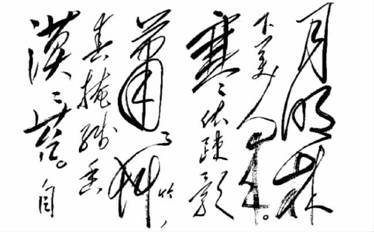 月明林
下美人来。
寒依疏影
萧〻竹、
春掩残香
漠〻苔。自